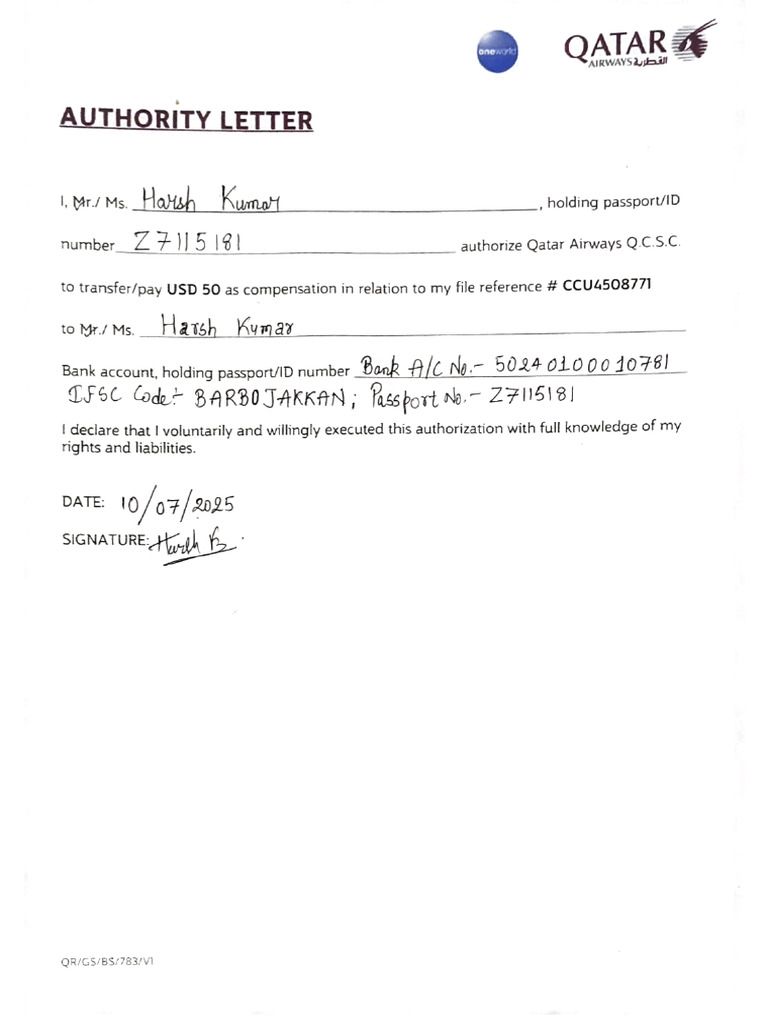 oneworld
QATAR
AIRWAYS القطرية
AUTHORITY LETTER
I, Mr./ Ms. Harsh Kumar, holding passport/ID
number Z7115181 authorize Qatar Airways Q.C.S.C.
to transfer/pay USD 50 as compensation in relation to my file reference # CCU4508771
to Mr./ Ms. Harsh Kumar
Bank account, holding passport/ID number Bank A/C No.- 50240100010781
IFSC Code:- BARBOJAKKAN; Passport No.- Z7115181
I declare that I voluntarily and willingly executed this authorization with full knowledge of my
rights and liabilities.
DATE: 10/07/2025
SIGNATURE: Harsh K
QR/GS/BS/783/V1